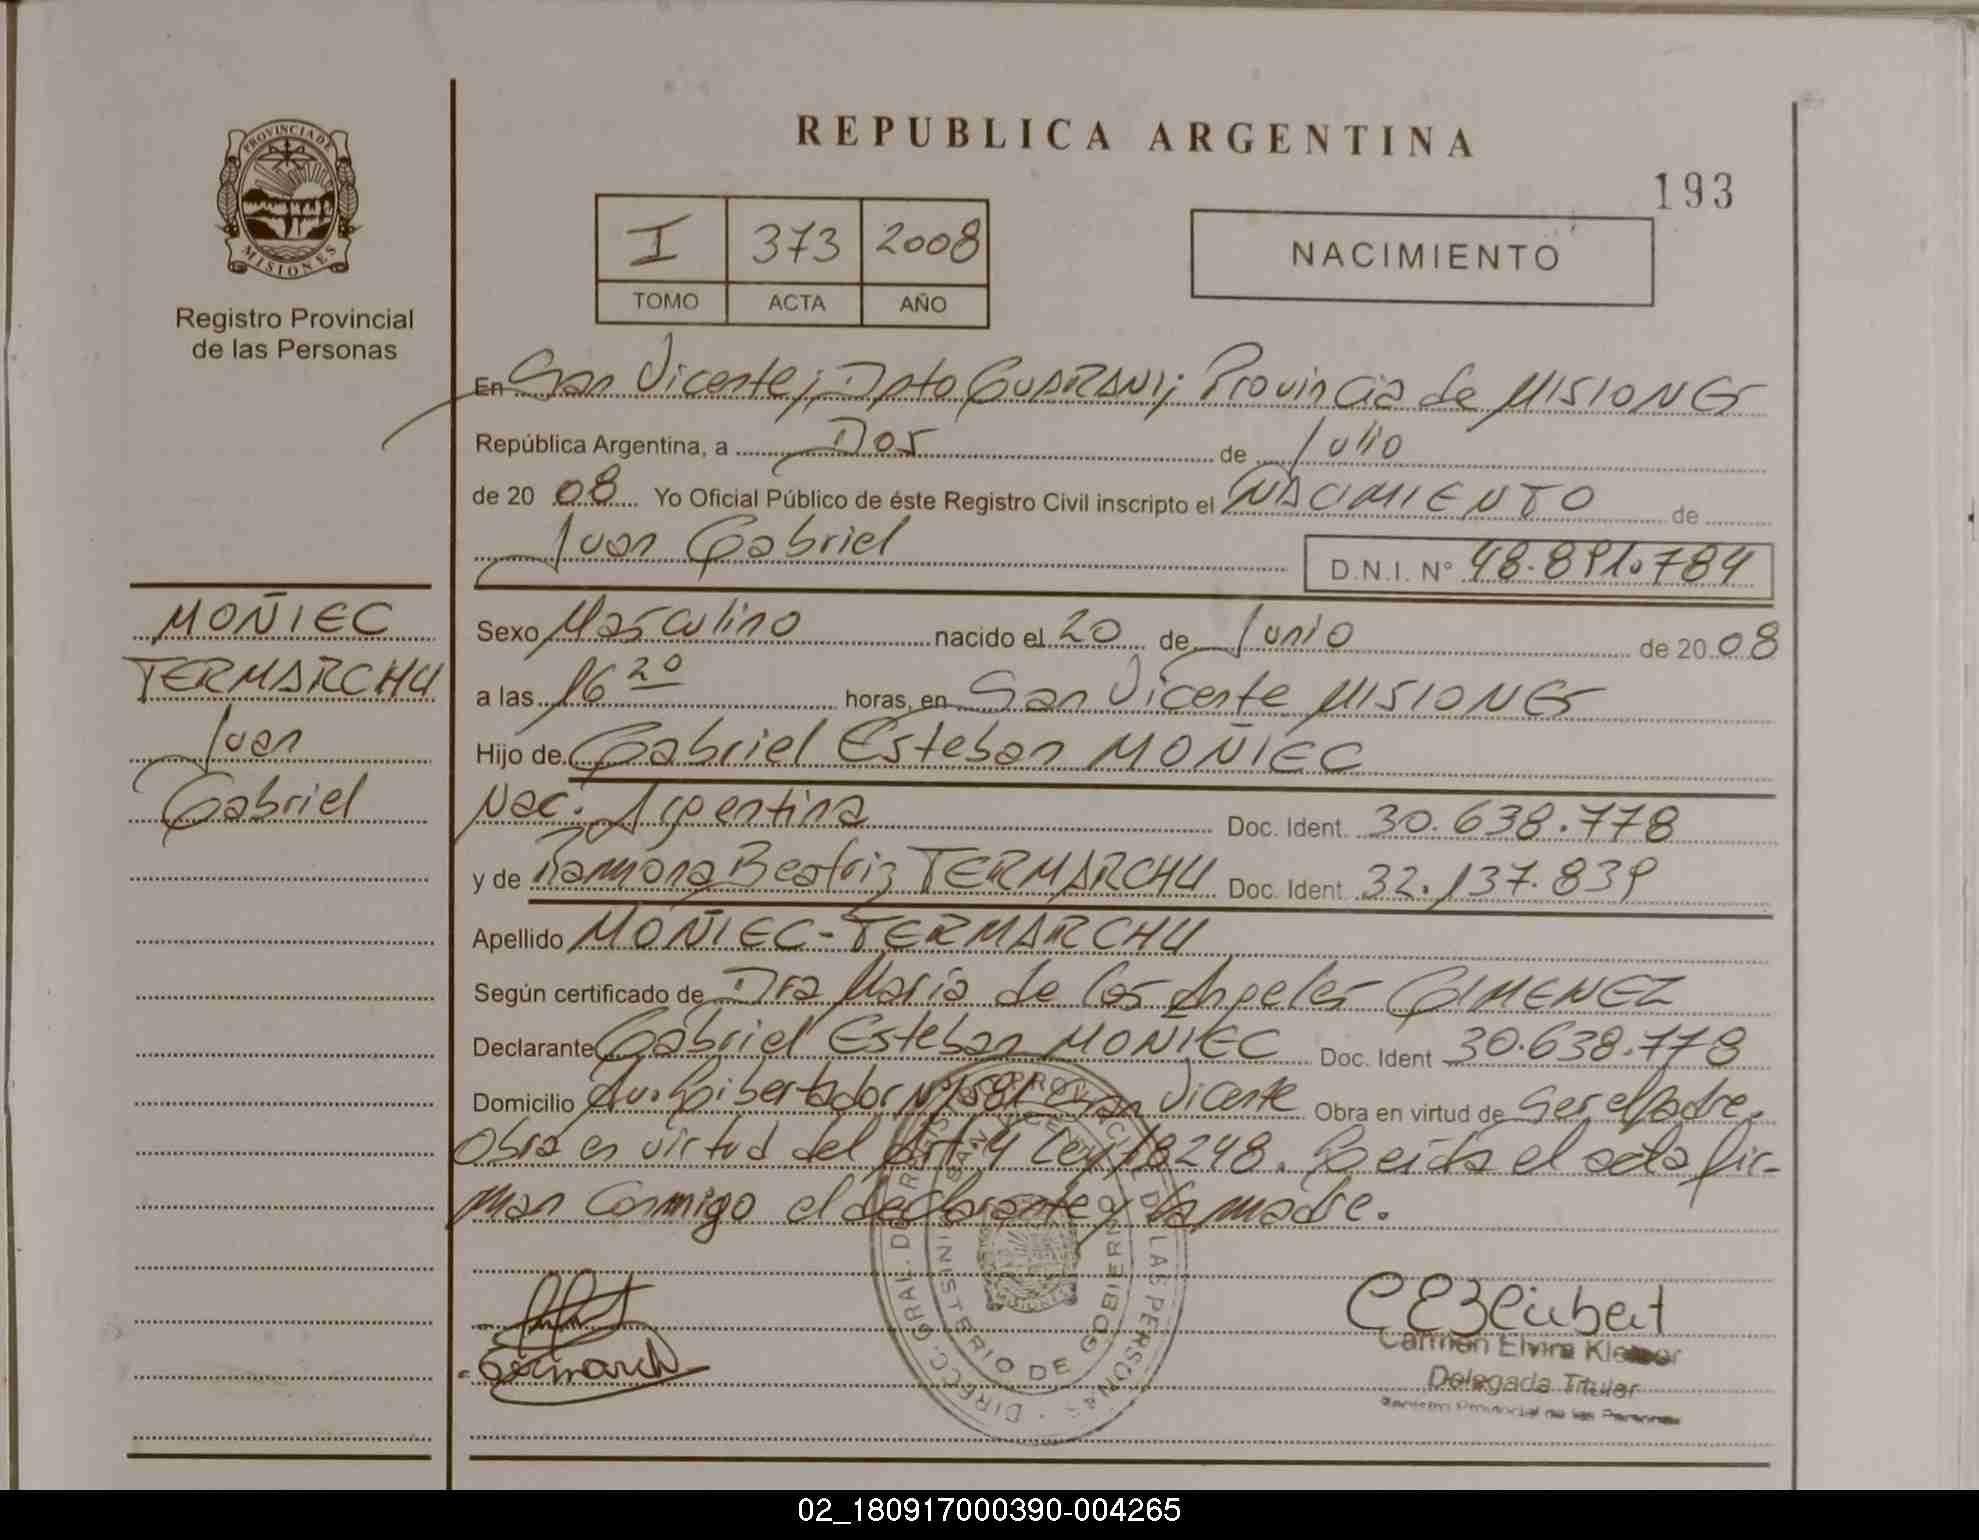 PROVINCIA DE
MISIONES
Registro Provincial
de las Personas
MOÑIEC
TERMARCHU
Juan
Gabriel
REPUBLICA ARGENTINA
193
I 373 2008
TOMO ACTA AÑO
NACIMIENTO
En San Vicente; Dpto GUARANI; Provincia de MISIONES
República Argentina, a Dos de Julio
de 20 08 Yo Oficial Público de éste Registro Civil inscripto el NACIMIENTO de
Juan Gabriel D.N.I. Nº 48.891.784
Sexo Masculino nacido el 20 de Junio de 20 08
a las 16 20 horas, en San Vicente MISIONES
Hijo de Gabriel Esteban MOÑIEC
Nac. Argentina Doc. Ident. 30.638.778
y de Ramona Beatriz TERMARCHU Doc. Ident. 32.137.839
Apellido MOÑIEC-TERMARCHU
Según certificado de Dra Maria de los Angeles GIMENEZ
Declarante Gabriel Esteban MOÑIEC Doc. Ident 30.638.778
Domicilio Av. Libertador Nº 1581 San Vicente Obra en virtud de ser el padre.
Obra en virtud del Art 4 Ley 18248. Leida el acta fir-
man conmigo el declarante y la madre.
DIREC. GRAL. DE PROV. DE LAS PERSONAS
SAN VICENTE
MINISTERIO DE GOBIERNO
Carmen Elvira
Delegada Titular
Registro Provincial de las Personas
02_180917000390-004265